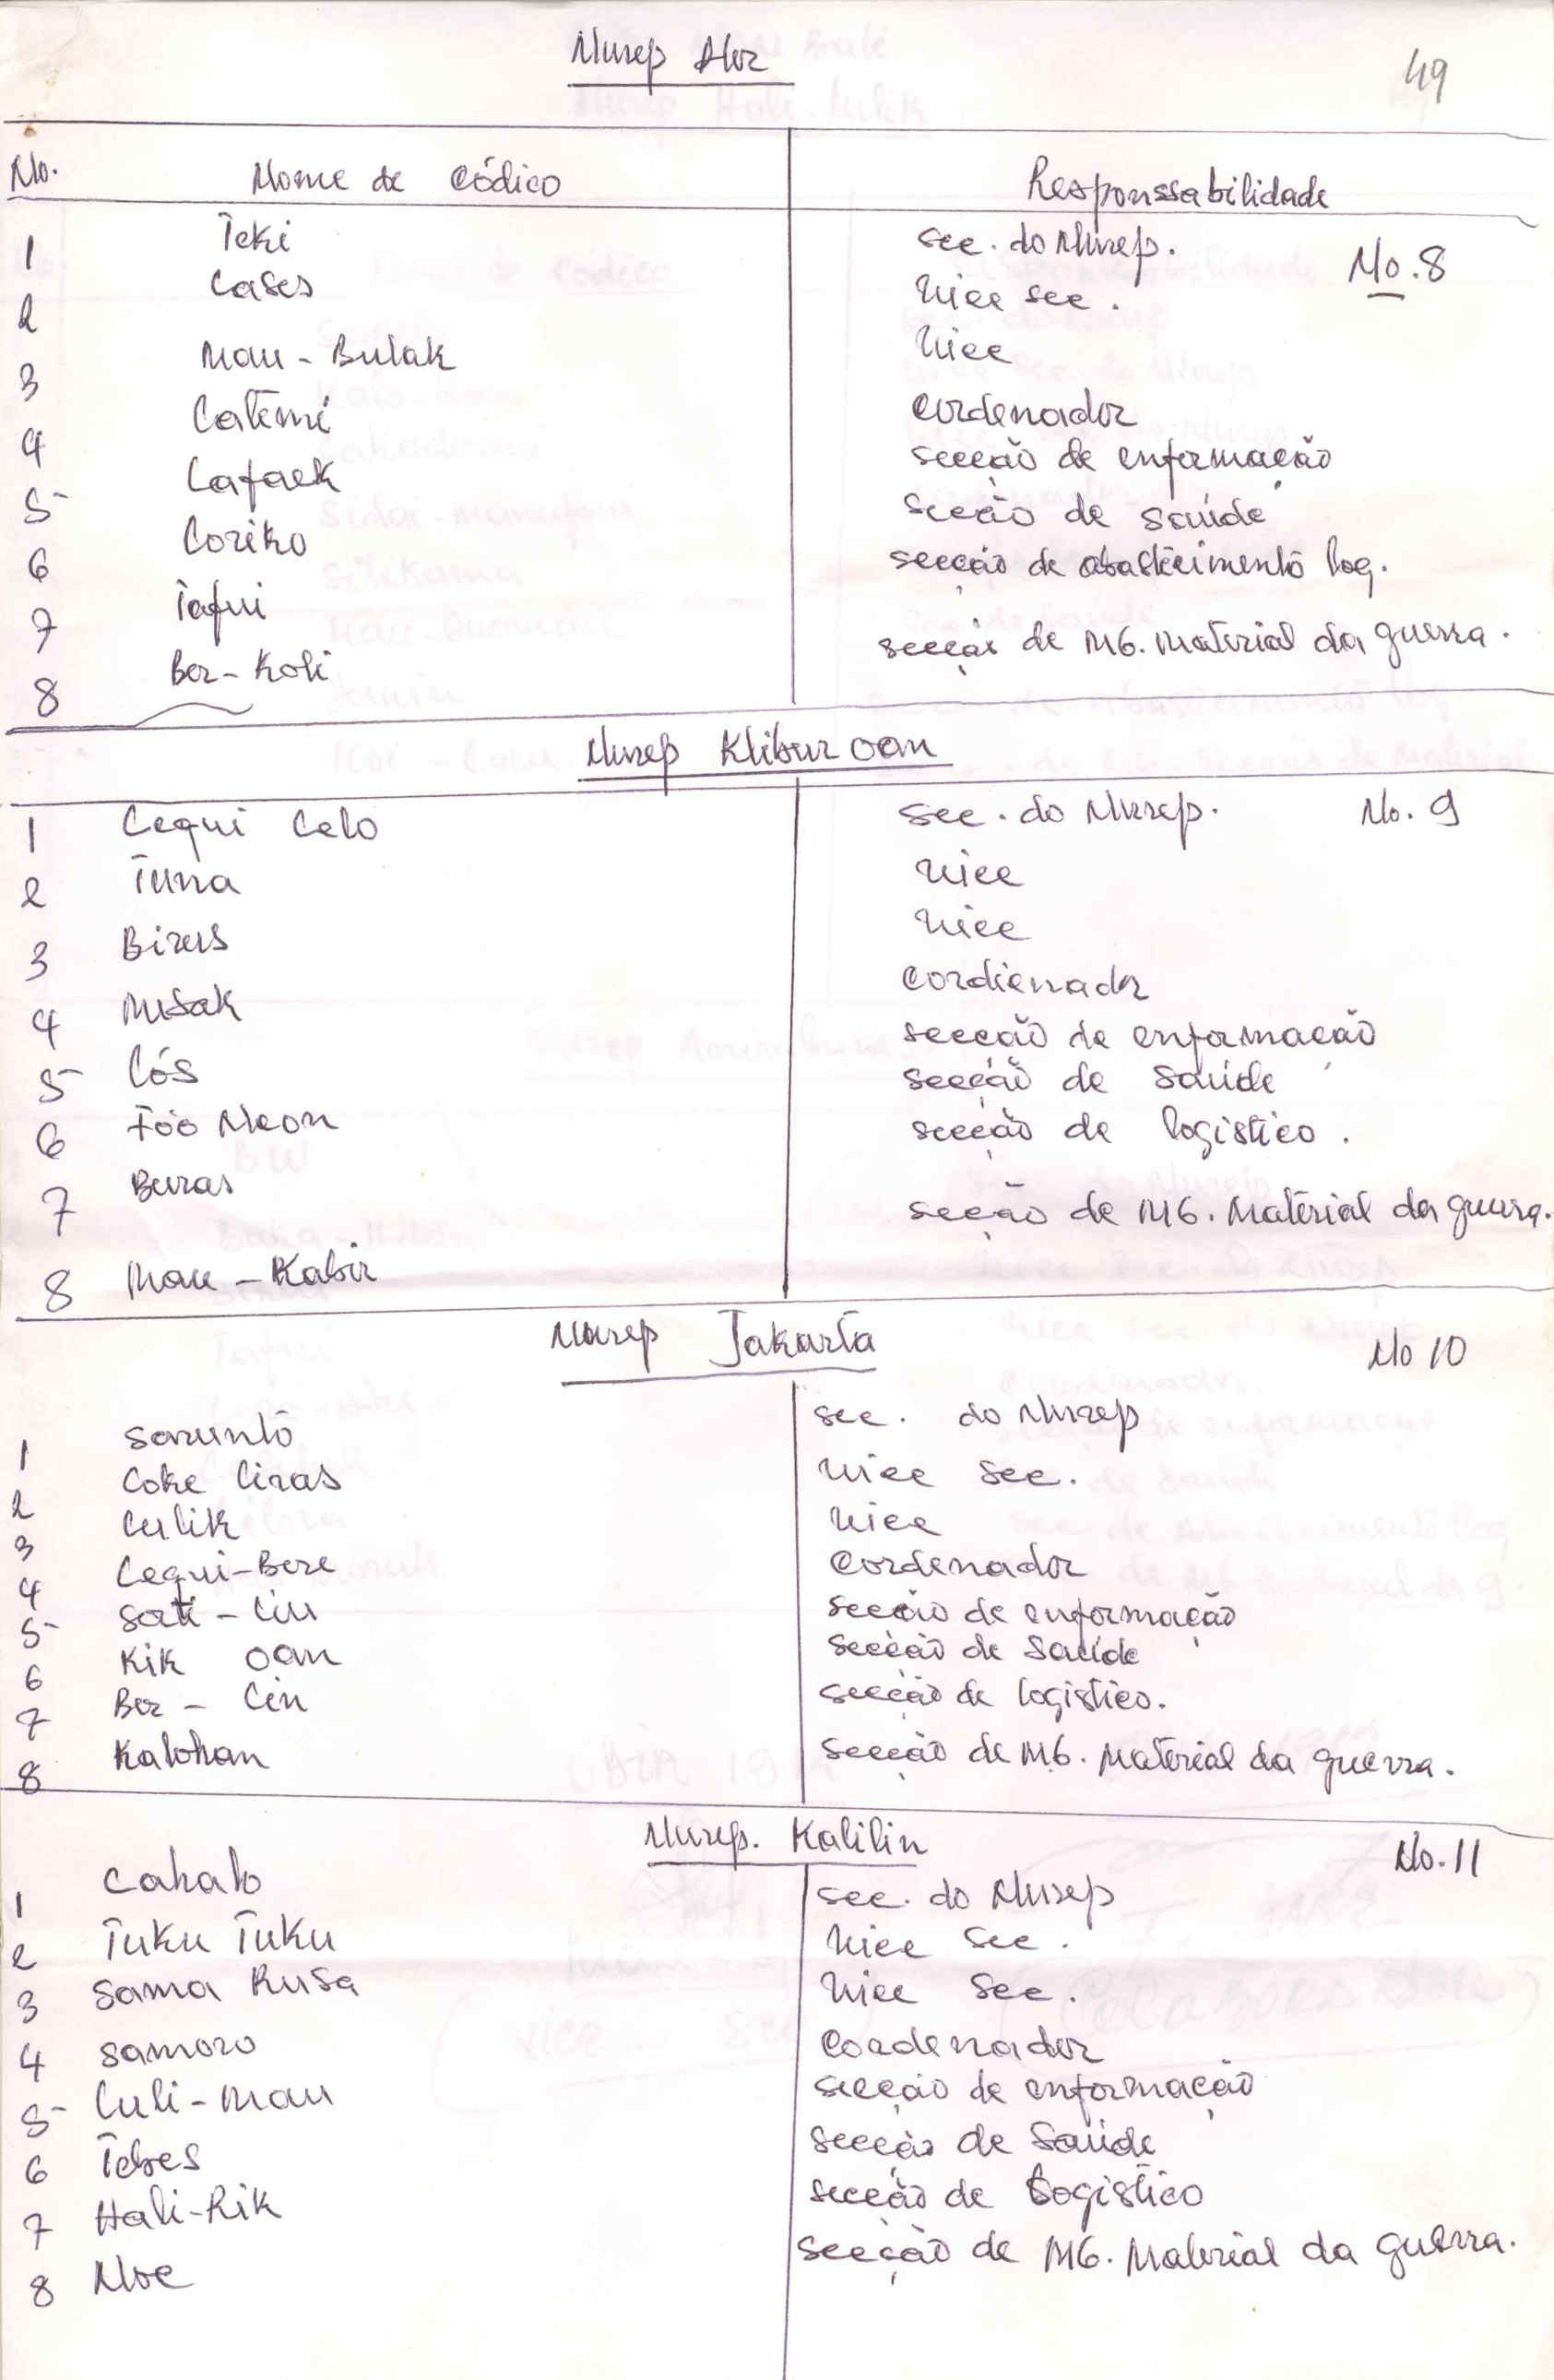 Nurep Alor
49
No. Nome de Códico Responssabilidade
1 Teki sec. do Nurep. No. 8
2 Lases vice sec.
3 Mau - Bulak vice
4 Latemi cordenador
5 Lafaek secção de enformação
6 Loriko secção de saúde
7 Tafui secção de abastecimento log.
8 Ber - Koli secção de MG. Material da guerra.
Nurep Klibur oan
1 Lequi Lelo sec. do Nurep. No. 9
2 Tuna vice
3 Birus vice
4 Musak cordienador
5 Lós secção de enformação
6 Fóo Neon secção de saúde
7 Buras secção de logistico.
8 Mau - Kabir secção de MG. Material da guerra.
Nurep Jakarta No 10
1 Sarunto sec. do Nurep
2 Coke Liras vice sec.
3 Lulik vice
4 Lequi-Bere cordenador
5 Sati - Liu secção de enformação
6 Kik oan secção de Saúde
7 Ber - Lin secção de logistico.
8 Kalohan secção de MG. Material da guerra.
Nurep. Kalilin No. 11
1 Lahalo sec. do Nurep
2 Tuku Tuku vice sec.
3 Sama Rusa vice sec.
4 Samoro Coadenador
5 Luli - Mau secção de enformação
6 Tebes secção de Saúde
7 Hali-Rik secção de Logistico
8 Noe secção de MG. Material da guerra.